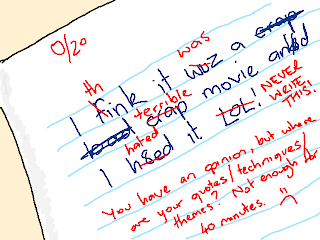 0/20
was
th
I fink it woz a crap
terrible
crap movie and
NEVER
WRITE
THIS!
hated
I h8ed it LOL!
You have an opinion, but where
are your quotes/techniques/
themes? Not enough for
40 minutes.